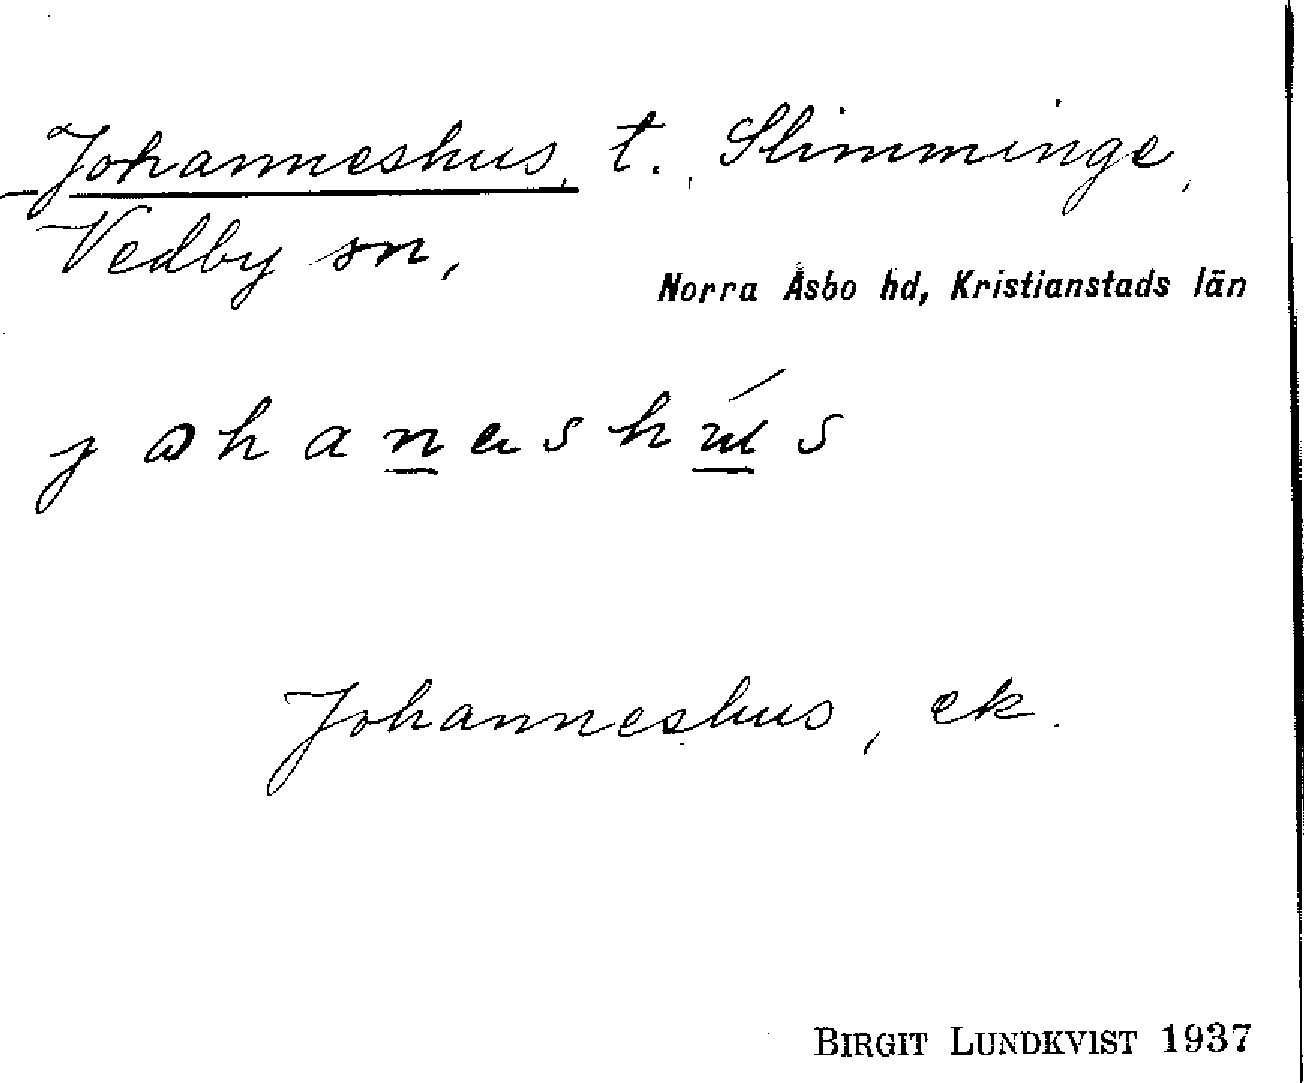 Johanneshus, t. Slimminge,
Vedby sn,
Norra Åsbo hd, Kristianstads län
Johanneshus, ek.
BIRGIT LUNDKVIST 1937